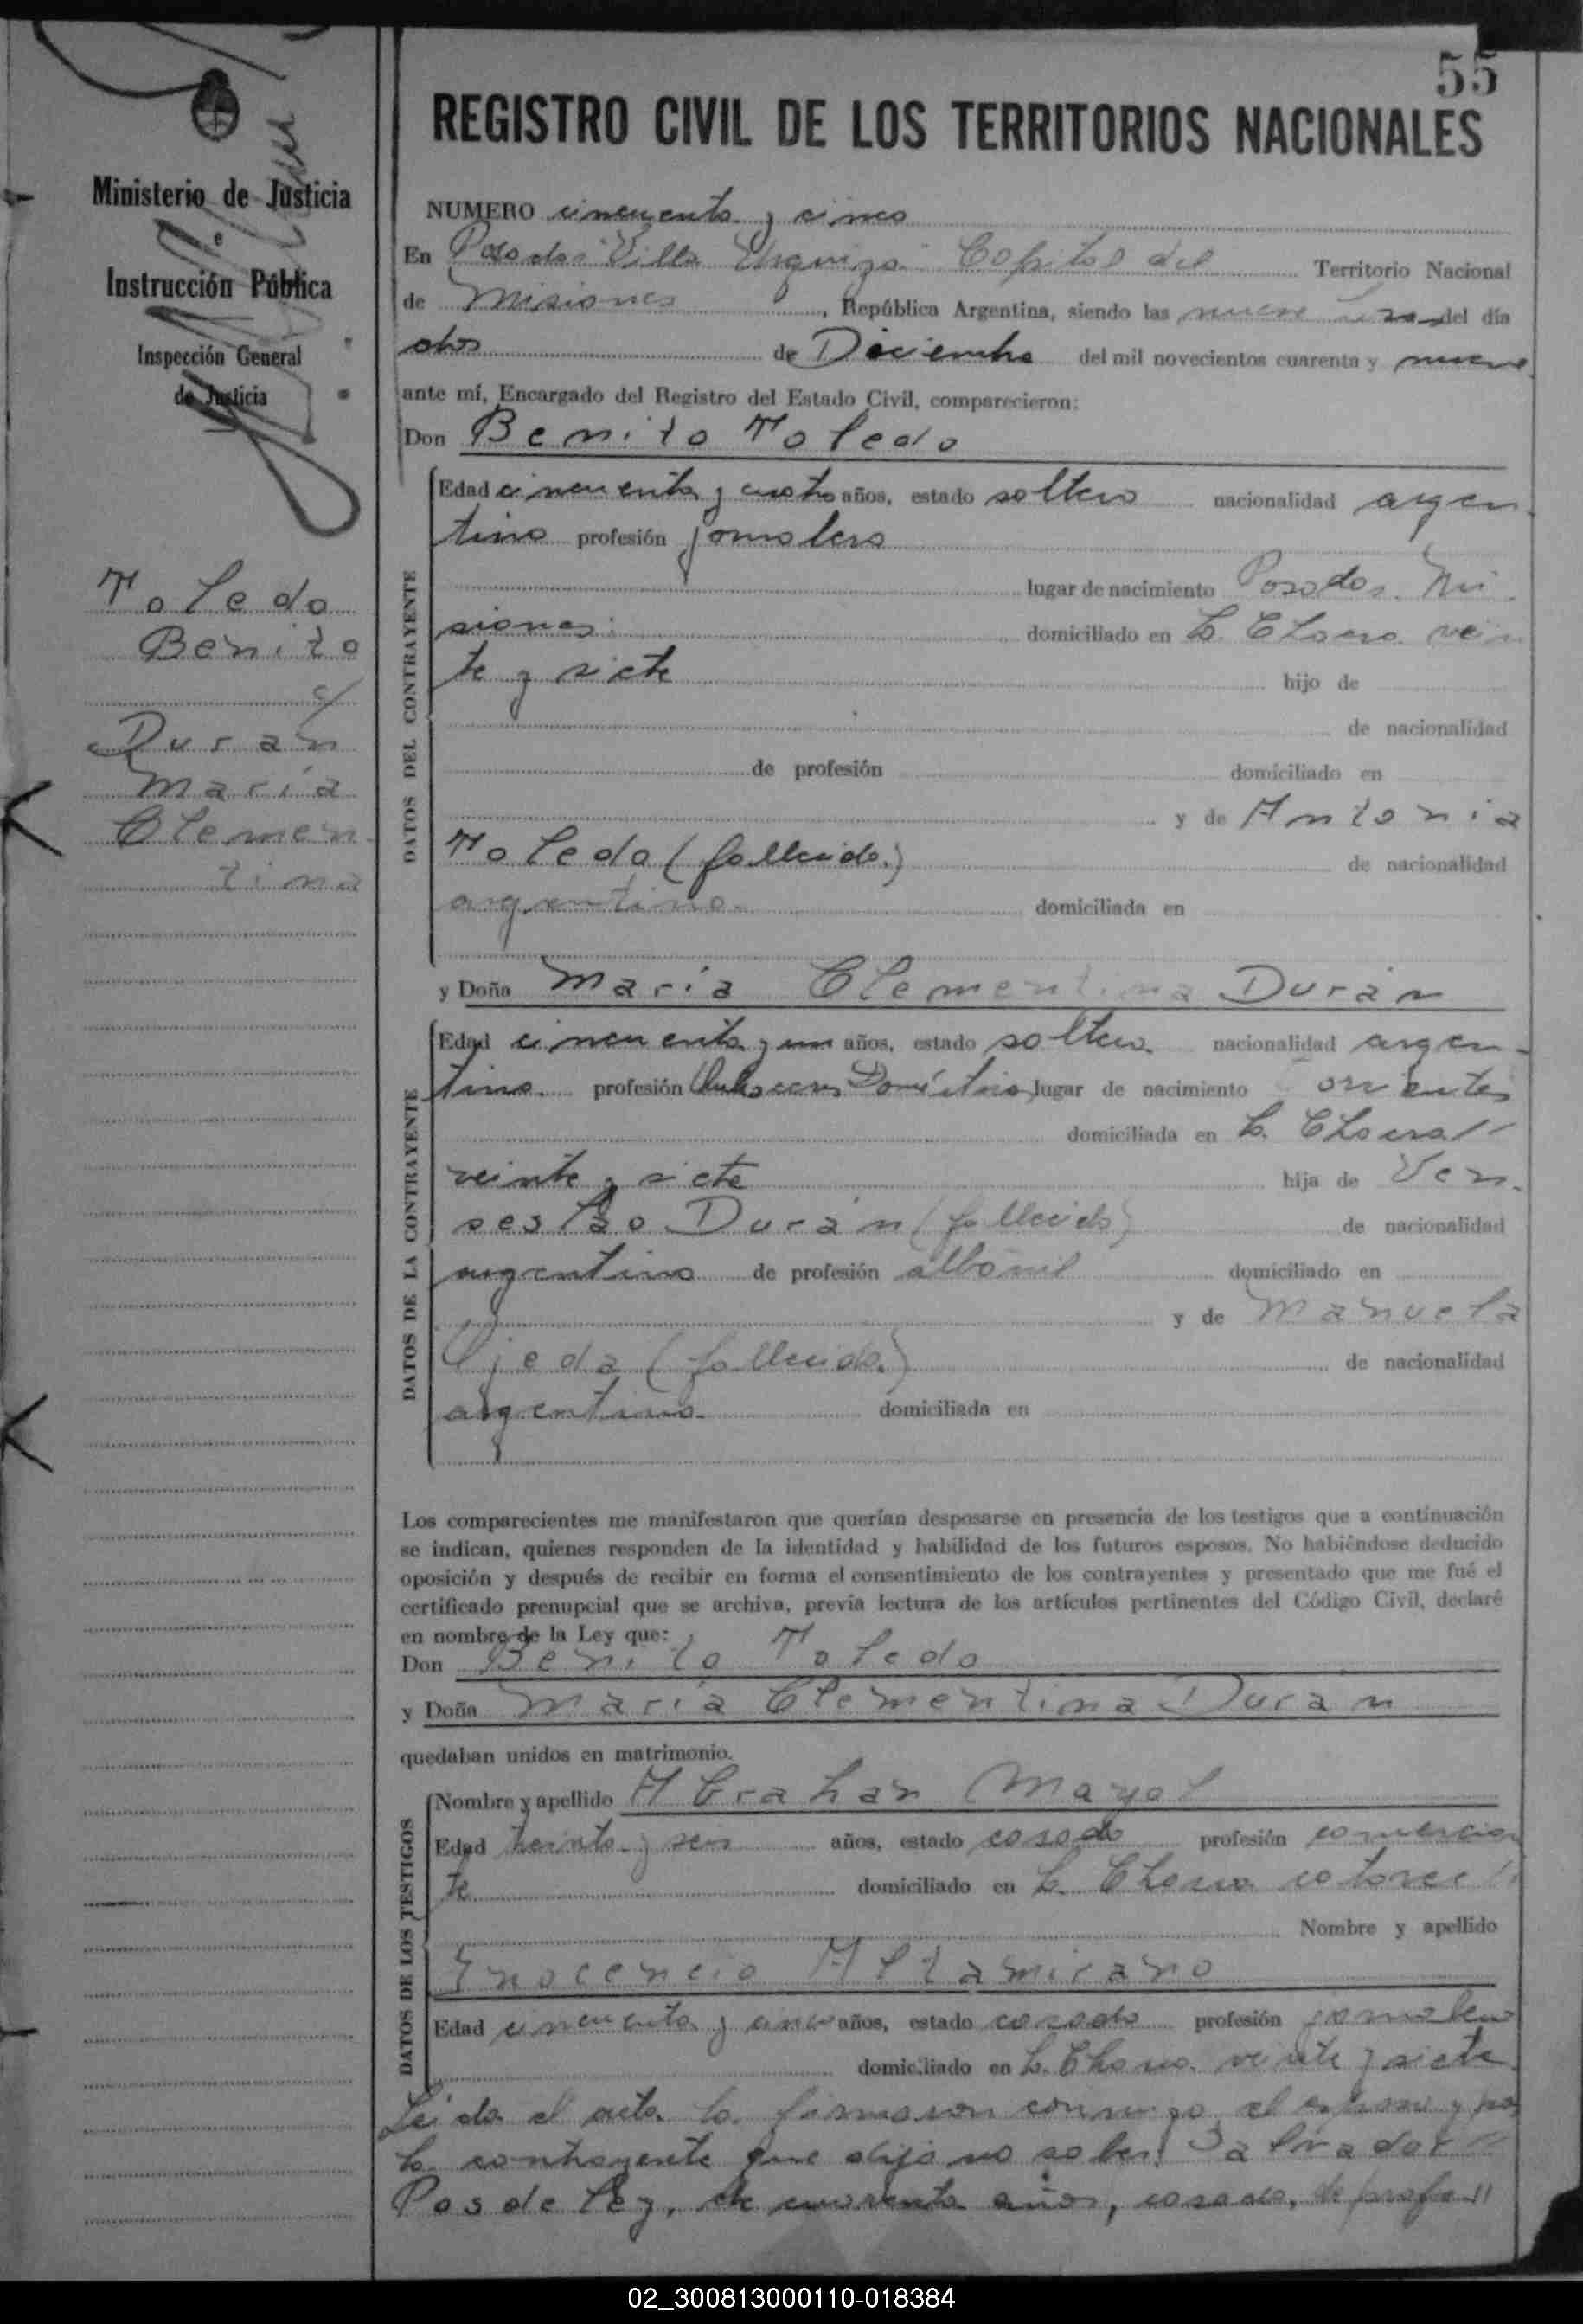 55
REGISTRO CIVIL DE LOS TERRITORIOS NACIONALES
Ministerio de Justicia
e
Instrucción Pública
Inspección General
de Justicia
Toledo
Benito
c/
Durán
María
Clemen
tina
NUMERO cincuenta y cinco
En Posadas Villa Urquiza Capital del Territorio Nacional
de Misiones, República Argentina, siendo las nueve horas del día
ocho de Diciembre del mil novecientos cuarenta y nueve
ante mí, Encargado del Registro del Estado Civil, comparecieron:
Don Benito Toledo
DATOS DEL CONTRAYENTE
Edad cincuenta y cuatro años, estado soltero nacionalidad argen
tino profesión jornalero
lugar de nacimiento Posadas Mi
siones domiciliado en L. Chacra vein
te y siete hijo de
de nacionalidad
de profesión domiciliado en
y de Antonia
Toledo (fallecida) de nacionalidad
argentina domiciliada en
y Doña María Clementina Durán
DATOS DE LA CONTRAYENTE
Edad cincuenta y un años, estado soltera nacionalidad argen
tina profesión Quehaceres Domésticos lugar de nacimiento Corrientes
domiciliada en L. Chacra //
veinte y siete hija de Ven
seslao Durán (fallecido) de nacionalidad
argentino de profesión albañil domiciliado en
y de Manuela
Ojeda (fallecida) de nacionalidad
argentina domiciliada en
Los comparecientes me manifestaron que querían desposarse en presencia de los testigos que a continuación
se indican, quienes responden de la identidad y habilidad de los futuros esposos. No habiéndose deducido
oposición y después de recibir en forma el consentimiento de los contrayentes y presentado que me fué el
certificado prenupcial que se archiva, previa lectura de los artículos pertinentes del Código Civil, declaré
en nombre de la Ley que:
Don Benito Toledo
y Doña María Clementina Durán
quedaban unidos en matrimonio.
DATOS DE LOS TESTIGOS
Nombre y apellido Abrahan Mayol
Edad treinta y seis años, estado casado profesión comercian
te domiciliado en L. Chacra catorce //
Nombre y apellido
Inocencio Altamirano
Edad cincuenta y cinco años, estado casado profesión jornalero
domiciliado en L. Chacra veinte y siete
Leída el acta la firmaron conmigo el esposo y por
la contrayente que dijo no saber Salvador //
Posdeley, de cuarenta años, casado, de profe //
02_300813000110-018384